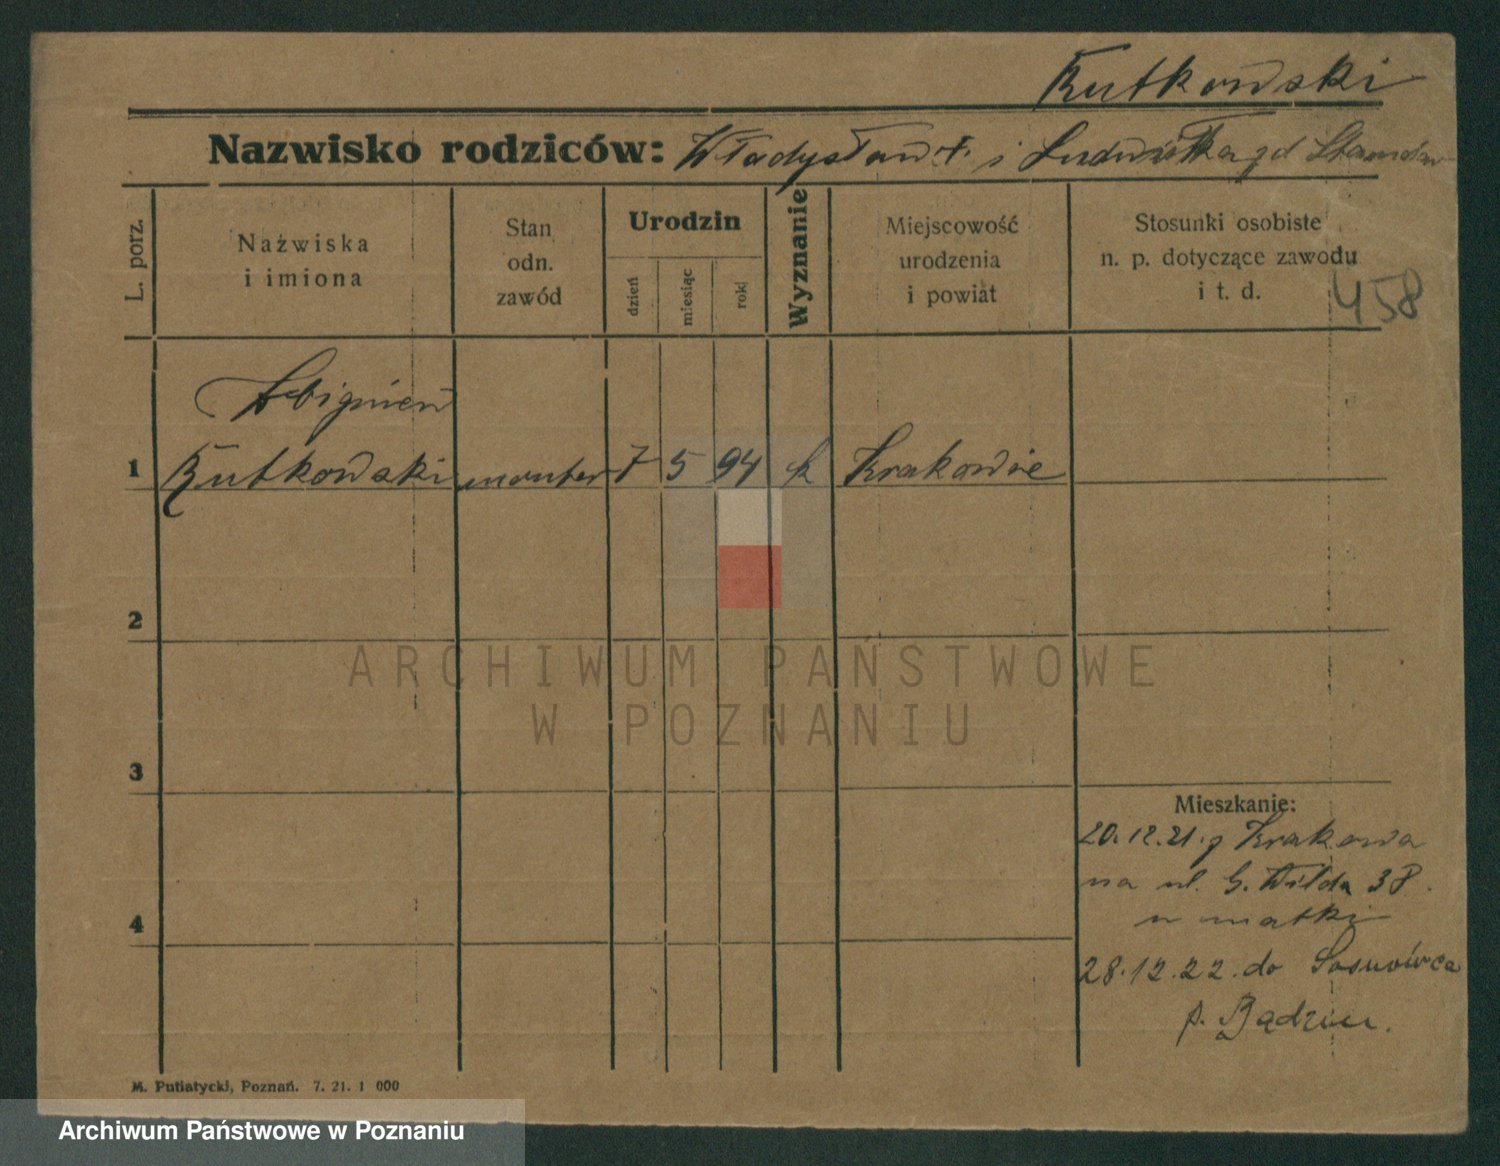 Rutkowski
Nazwisko rodziców: Władysław † i Ludwika zd
L. porz.
Nazwiska
i imiona
Stan
odn.
zawód
Urodzin
dzień
miesiąc
rok
Wyznanie
Miejscowość
urodzenia
i powiat
Stosunki osobiste
n. p. dotyczące zawodu
i t. d.
458
Zbigniew
1 Rutkowski monter 7 5 94 k Krakowie
2
ARCHIWUM PAŃSTWOWE
W POZNANIU
3
Mieszkanie:
20.12.21. z Krakowa
na ul. G. Wilda 38.
u matki
4
28.12.22. do Sosnówca
p. Bądzin.
M. Putiatycki, Poznań. 7. 21. 1 000
Archiwum Państwowe w Poznaniu